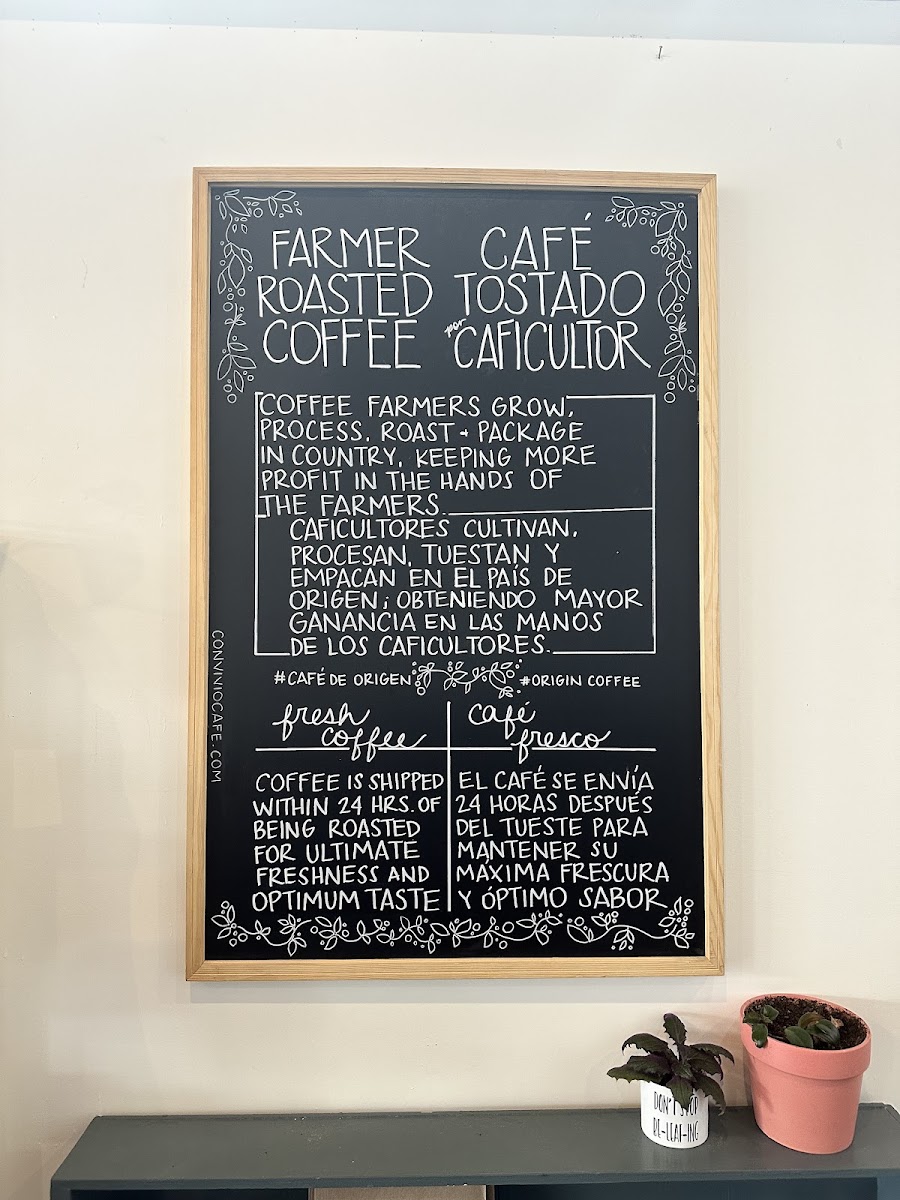 FARMER
ROASTED
COFFEE
CAFÉ
TOSTADO
por CAFICULTOR
COFFEE FARMERS GROW,
PROCESS, ROAST + PACKAGE
IN COUNTRY, KEEPING MORE
PROFIT IN THE HANDS OF
THE FARMERS.
CAFICULTORES CULTIVAN,
PROCESAN, TUESTAN Y
EMPACAN EN EL PAÍS DE
ORIGEN; OBTENIENDO MAYOR
GANANCIA EN LAS MANOS
DE LOS CAFICULTORES.
#CAFÉ DE ORIGEN
#ORIGIN COFFEE
fresh
coffee
COFFEE IS SHIPPED
WITHIN 24 HRS. OF
BEING ROASTED
FOR ULTIMATE
FRESHNESS AND
OPTIMUM TASTE
café
fresco
EL CAFÉ SE ENVÍA
24 HORAS DESPUÉS
DEL TUESTE PARA
MANTENER SU
MÁXIMA FRESCURA
Y ÓPTIMO SABOR
CONVINIOCAFE.COM
DON'T STOP
BE-LEAF-ING